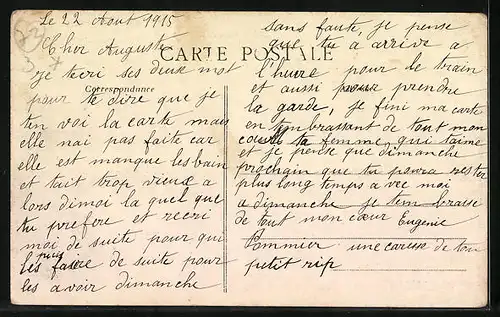 Le 22 Aout 1915
Cher Auguste
CARTE POSTALE
Correspondance
je tecri ses deux mot
pour te dire que je
ten voi la carte mais
elle nai pas faite car
elle est manque les bain
et tait trop vieux a
lors dimoi la quel que
tu prefere et recri
moi de suite pour qui
puis
les faire de suite pour
les avoir dimanche
sans faute, je pense
que tu a arrive a
l'huire pour le train
et aussi pour prendre
la garde, je fini ma carte
en tembrassant de tout mon
coeur ta femme qui taime
et je pense que dimanche
prochain que tu poura rester
plus long temps avec moi
a dimanche je tem brasse
de tout mon cœur Eugenie
Pommier une caresse de ton
petit rip